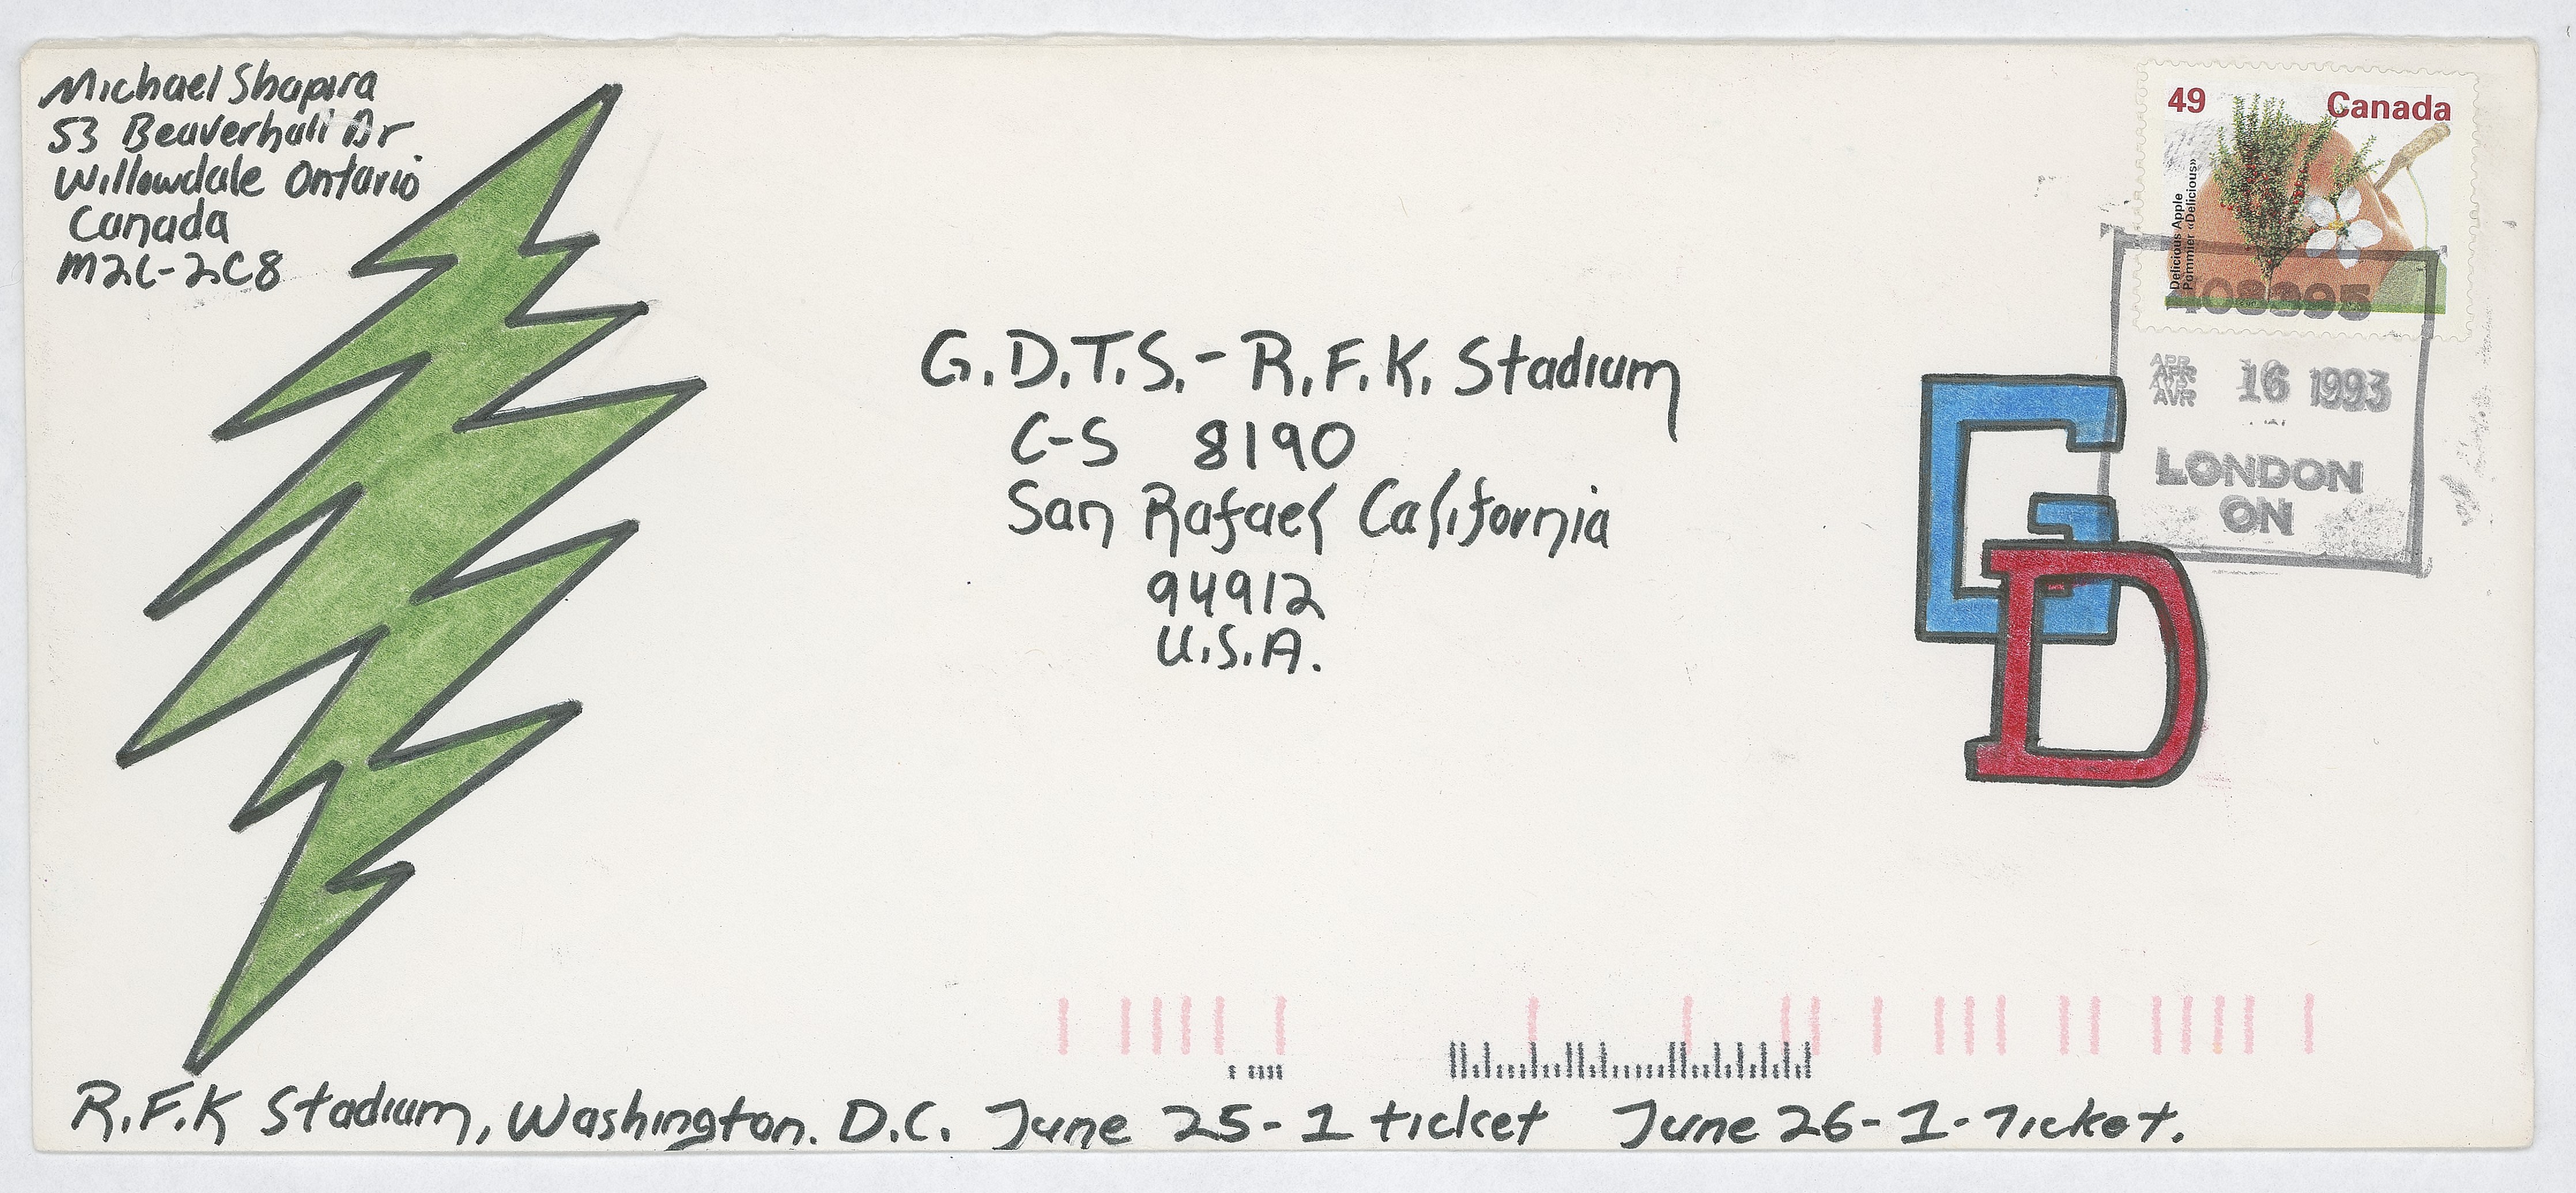 Michael Shapira
53 Beaverhall Dr
Willowdale Ontario
Canada
M2L-2C8
49 Canada
Delicious Apple
Pommier «Delicious»
408395
APR
AVR
16 1993
LONDON
ON
G.D.T.S.- R.F.K. Stadium
C-S 8190
San Rafael California
94912
U.S.A.
GD
R.F.K Stadium, Washington. D.C. June 25-1 ticket June 26-1-Ticket.